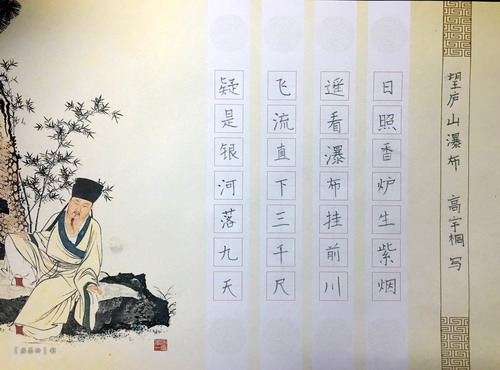 望庐山瀑布 高宇桐 写
日照香炉生紫烟
遥看瀑布挂前川
飞流直下三千尺
疑是银河落九天